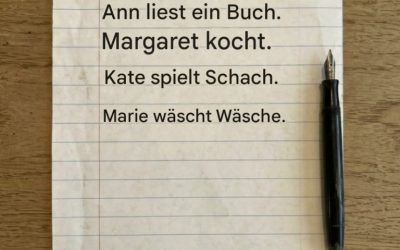 Ann liest ein Buch.
Margaret kocht.
Kate spielt Schach.
Marie wäscht Wäsche.